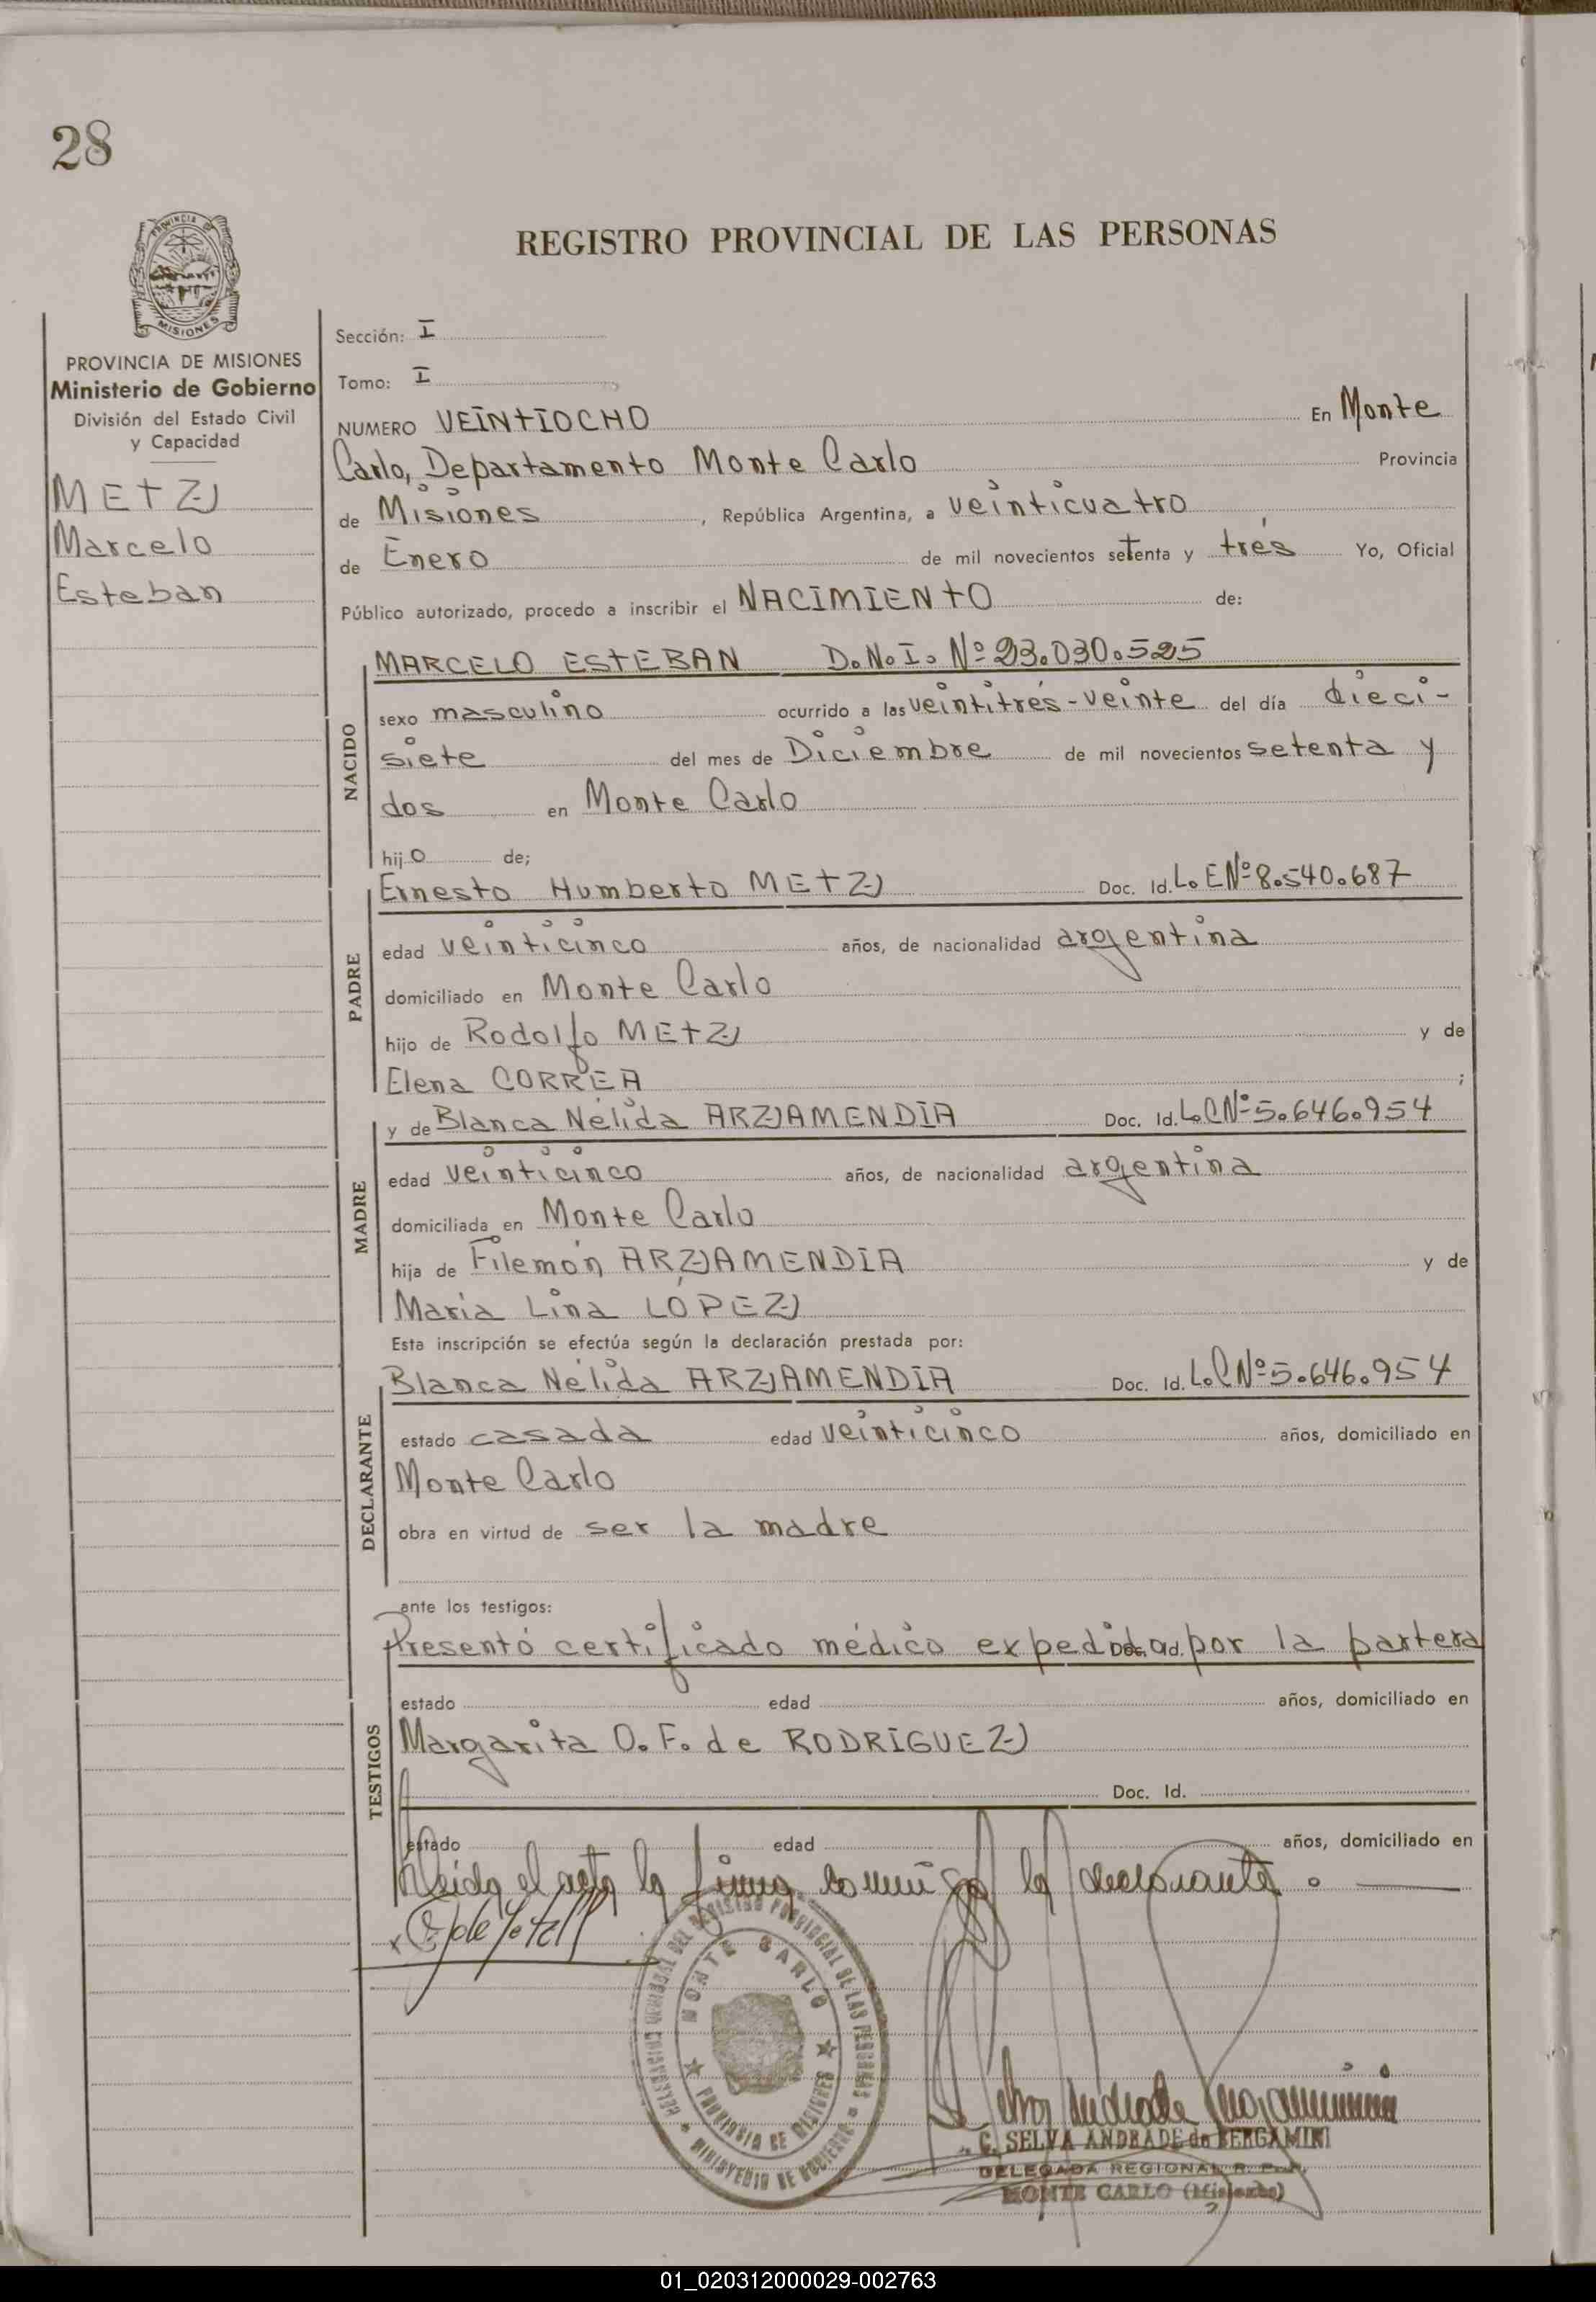 28
REGISTRO PROVINCIAL DE LAS PERSONAS
PROVINCIA
MISIONES
PROVINCIA DE MISIONES
Ministerio de Gobierno
División del Estado Civil
y Capacidad
METZ
Marcelo
Esteban
Sección: I
Tomo: I
NUMERO VEINTIOCHO En Monte
Carlo, Departamento Monte Carlo Provincia
de Misiones, República Argentina, a veinticuatro
de Enero de mil novecientos setenta y trés Yo, Oficial
Público autorizado, procedo a inscribir el NACIMIENTO de:
NACIDO
MARCELO ESTEBAN D.N.I. Nº 23.030.525
sexo masculino ocurrido a las veintitrés-veinte del día dieci-
siete del mes de Diciembre de mil novecientos setenta y
dos en Monte Carlo
hijo de;
PADRE
Ernesto Humberto METZ Doc. Id. L.E Nº 8.540.687
edad veinticinco años, de nacionalidad argentina
domiciliado en Monte Carlo
hijo de Rodolfo METZ y de
Elena CORREA ;
MADRE
y de Blanca Nélida ARZAMENDIA Doc. Id. L.C Nº 5.646.954
edad veinticinco años, de nacionalidad argentina
domiciliada en Monte Carlo
hija de Filemón ARZAMENDIA y de
María Lina LÓPEZ
Esta inscripción se efectúa según la declaración prestada por:
DECLARANTE
Blanca Nélida ARZAMENDIA Doc. Id. L.C Nº 5.646.954
estado casada edad veinticinco años, domiciliado en
Monte Carlo
obra en virtud de ser la madre
ante los testigos:
TESTIGOS
Presentó certificado médico expedido por la partera
estado edad años, domiciliado en
Margarita O. F. de RODRIGUEZ
Doc. Id.
estado edad años, domiciliado en
Leida el acta la firma conmigo la declarante.
DELEGACION GENERAL DEL REGISTRO PROVINCIAL DE LAS PERSONAS
MONTE CARLO
PROVINCIA DE MISIONES
MINISTERIO DE GOBIERNO
C. SELVA ANDRADE de BERGAMINI
DELEGADA REGIONAL R. P. P.
MONTE CARLO (Misiones)
01_020312000029-002763